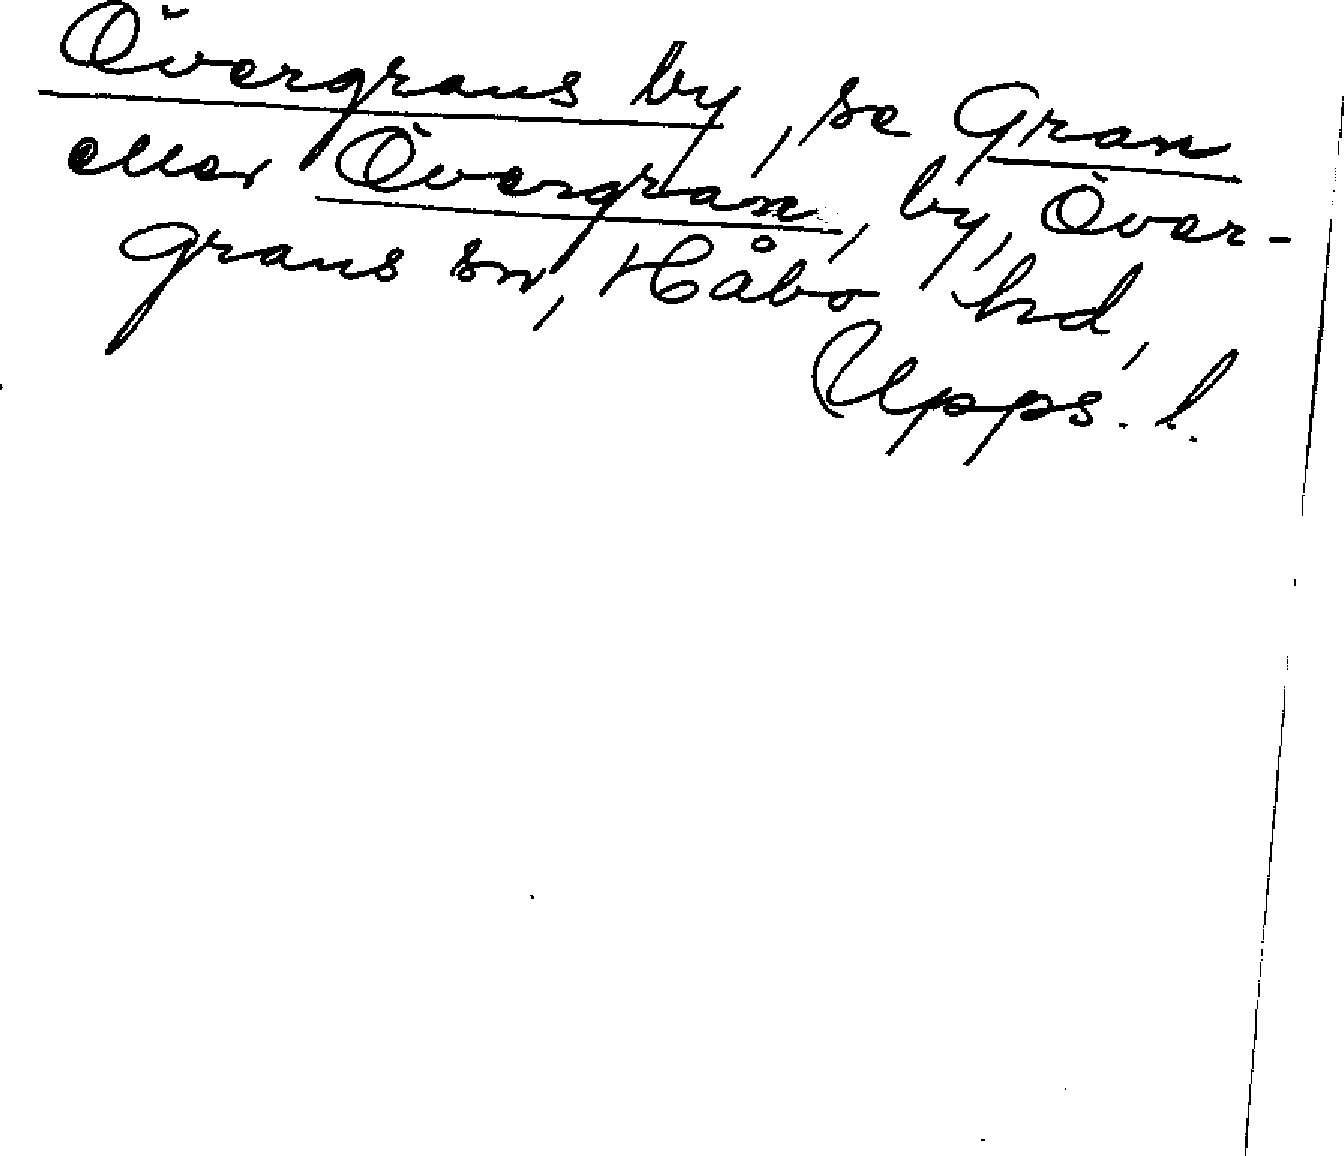 Övergrans by, se Gran
eller Övergran, by, Över-
grans sn, Håbo hd,
Upps. l.